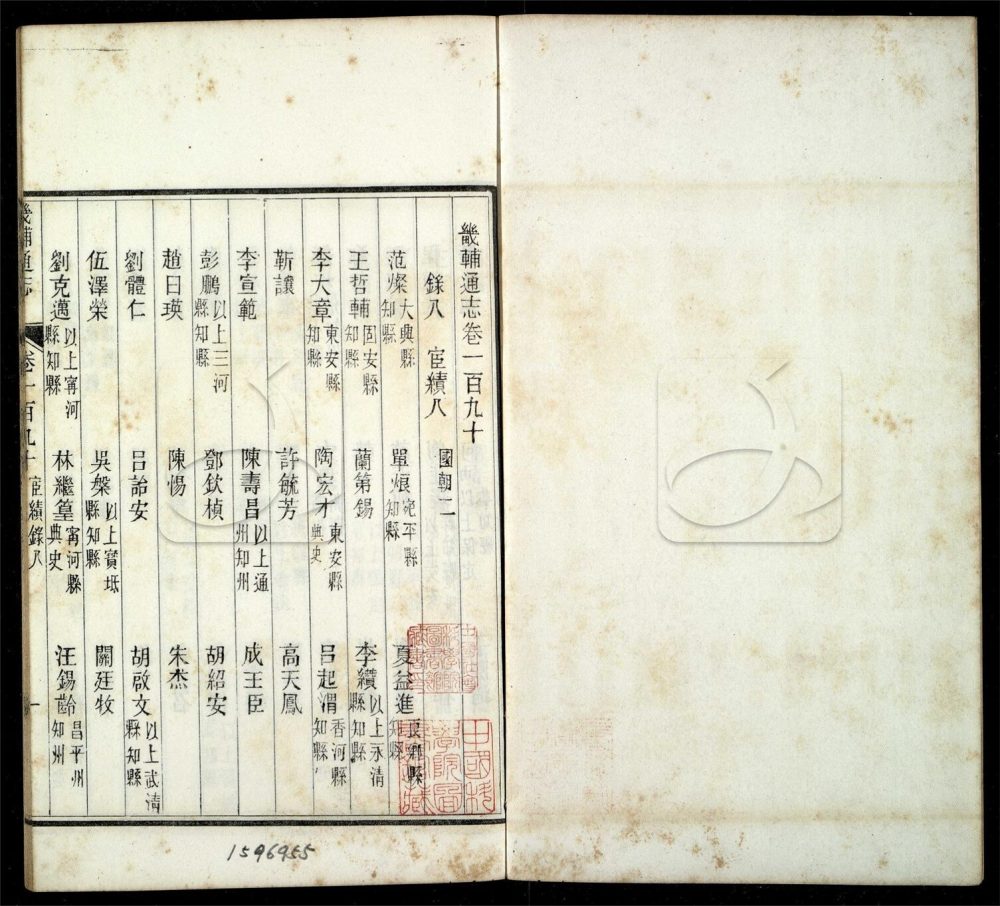 畿輔通志卷一百九十
錄八 宦績八 國朝二
范燦大興縣知縣 單烺宛平縣知縣 夏益進良鄉縣知縣
王哲輔固安縣知縣 蘭第錫 李纘以上永清縣知縣
李大章東安縣知縣 陶宏才東安縣典史 呂起渭香河縣知縣
靳讓 許毓芳 高天鳳
李宣範 陳壽昌以上通州知州 成王臣
彭鵬以上三河縣知縣 鄧欽楨 胡紹安
趙日瑛 陳惕 朱杰
劉體仁 呂詒安 胡啟文以上武清縣知縣
伍澤榮 吳槃以上寶坻縣知縣 關廷牧
劉克邁以上甯河縣知縣 林繼篁甯河縣典史 汪錫齡昌平州知州
畿輔通志 卷一百九十 宦績錄八 一
1596955